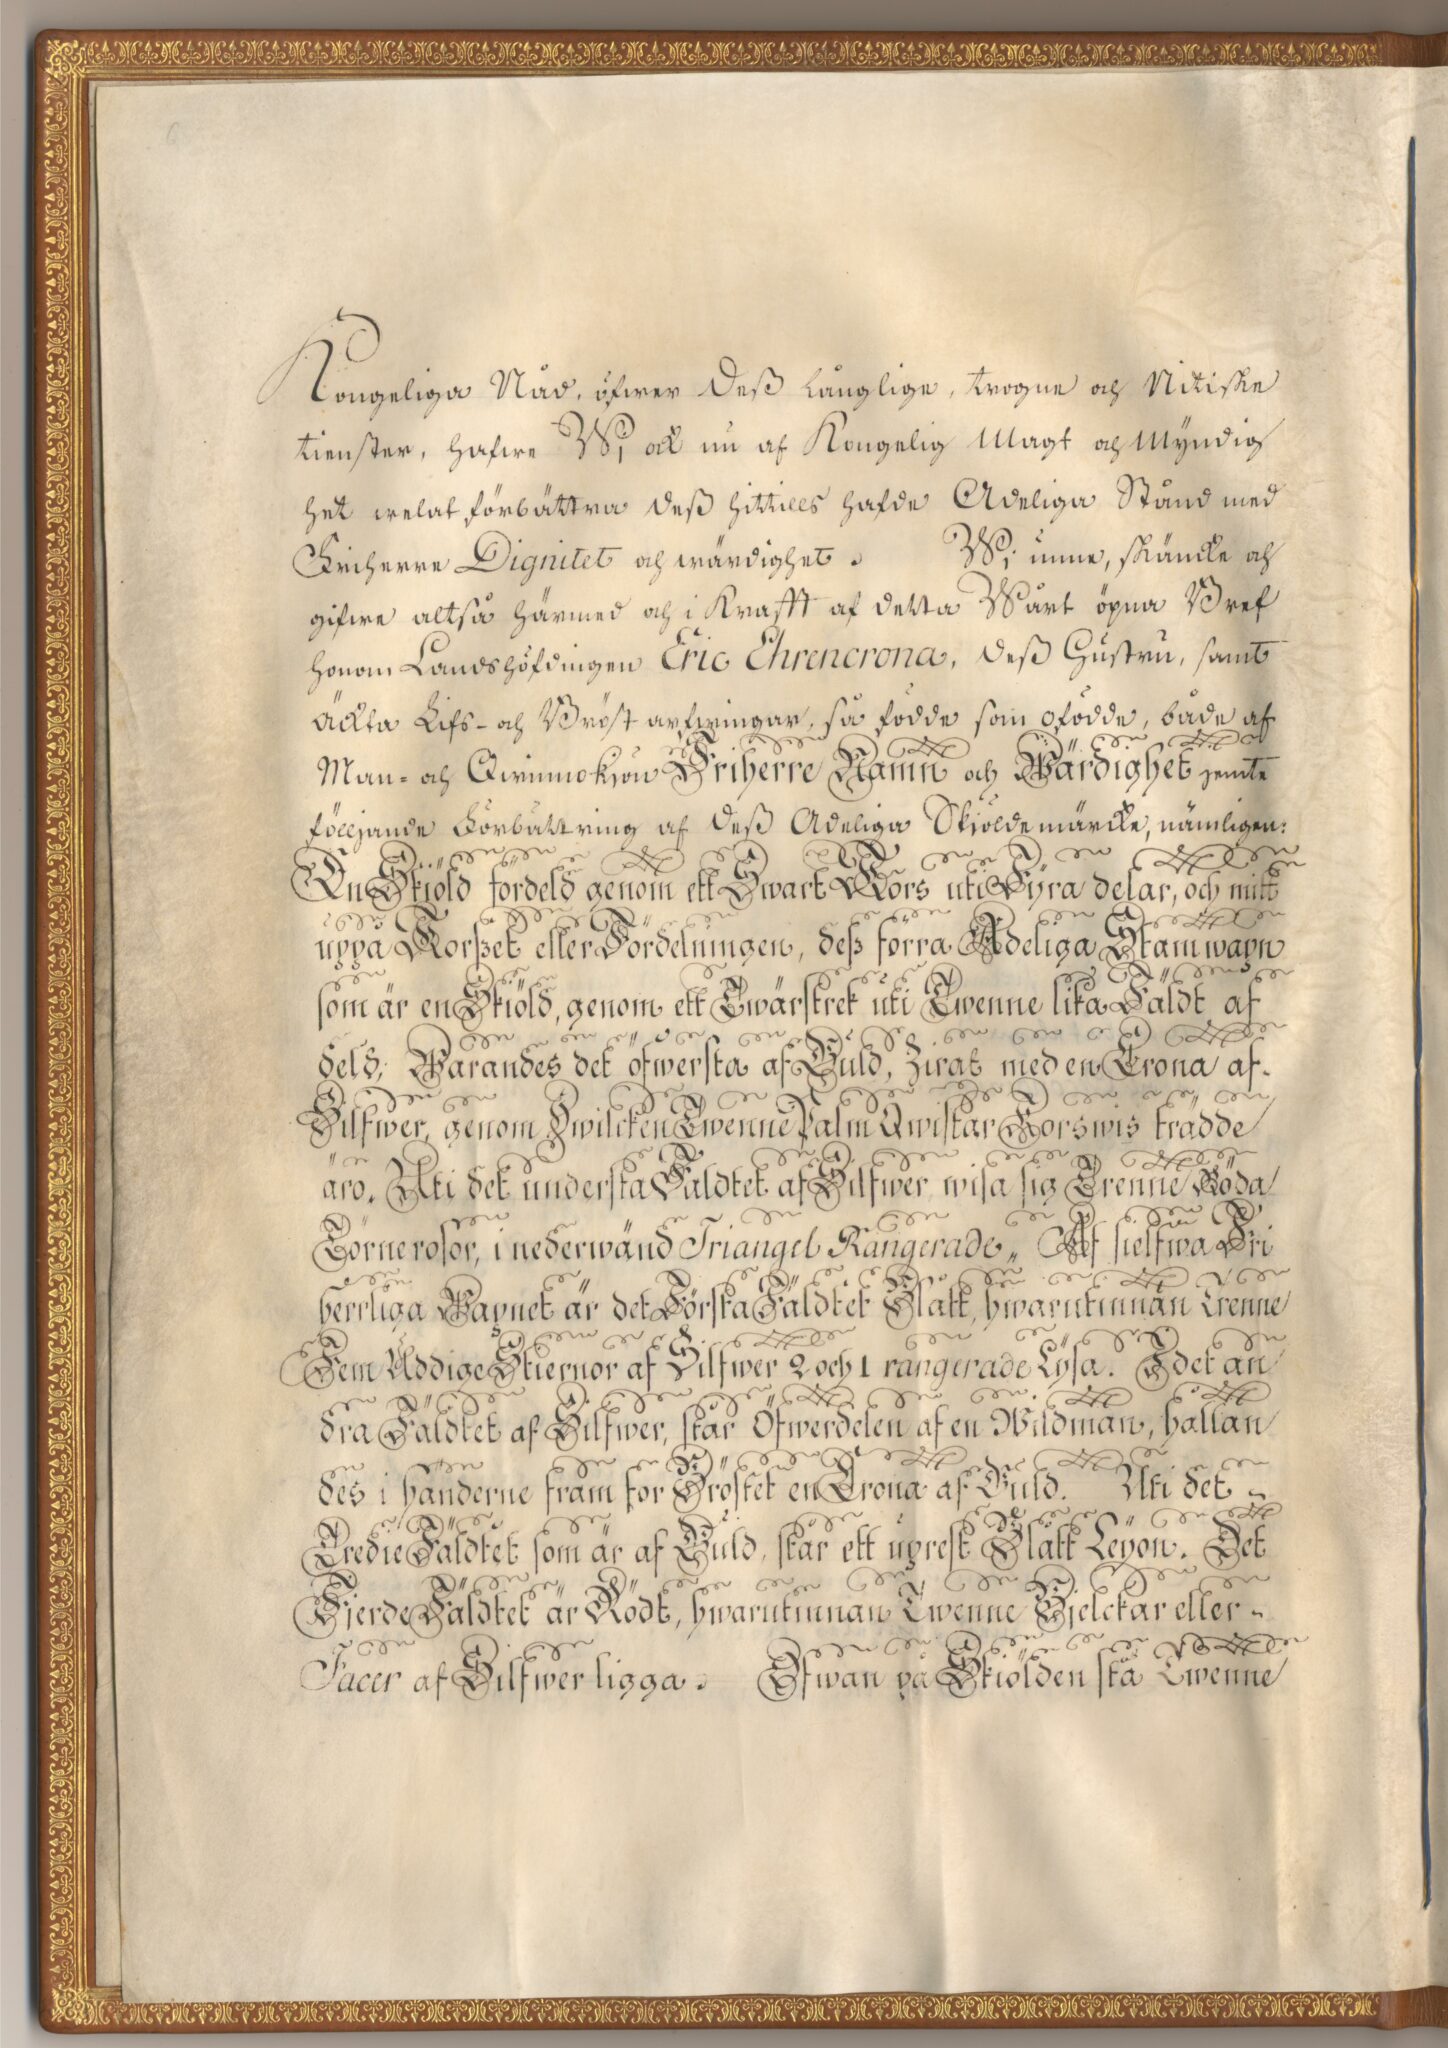 Kongeliga Nåd, öfwer Deß långlige, trogne och Nitiske
tienster, hafwe Wi ock nu af Kongelig Magt och Myndig
het welat förbättra Deß hittills hafde Adeliga Stånd med
Friherre Dignitet och wärdighet. Wi unne, skäncke och
gifwe altså härmed och i Krafft af detta Wårt öpna Bref
honom Landshöfdingen Eric Ehrencrona, Deß Hustru, samt
äckta Lifs- och Bröst arfwingar, så födde som ofödde, både af
Man- och Qwinnokjön Friherre Namn och Wärdighet jemte
fölljande Förbättring af Deß Adeliga Skjöldemärcke, nämligen:
En Skiöld fördeld genom ett Swart Kors uti Fyra delar, och mitt
uppå Korßet eller Fördelningen, deß förra Adeliga Stamwapn
som är en Skiöld, genom ett Twärstrek uti Twenne lika Fäldt af
deld, Warandes det öfwersta af Guld, Zirat med en Crona af
Silfwer, genom Hwilcken Twenne Palm Qwistar Korswis trädde
äro. Uti det understa Fäldtet af Silfwer wisa sig Trenne Röda
Törnerosor, i nederwänd Triangel Rangerade„ Af sielfwa Fri
herrliga Wapnet är det Första Fäldtet Blått, hwarutinnan Trenne
Fem Uddige Stiernor af Silfwer 2 och 1 rangerade Lysa. I det an
dra Fäldtet af Silfwer, står Öfwerdelen af en Wildman, hållan
des i händerne fram för Bröstet en Crona af Guld. Uti det
Tredie Fäldtet som är af Guld, står ett uprest Blått Leyon. Det
Fierde Fäldtet är Rödt, hwarutinnan Twenne Bielckar eller
Facer af Silfwer ligga. Ofwan på Skiölden stå Twenne